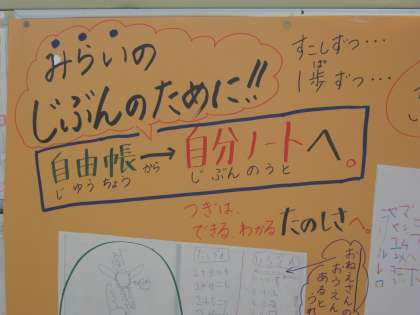 みらいの
じぶんのために!!
すこしずつ…
ぱ
1歩ずつ…
自由帳→自分ノートへ。
じゆうちょう から じぶんのうと
つぎは、
できる、わかる たのしさへ。
おねえさんの
おうえん
あると